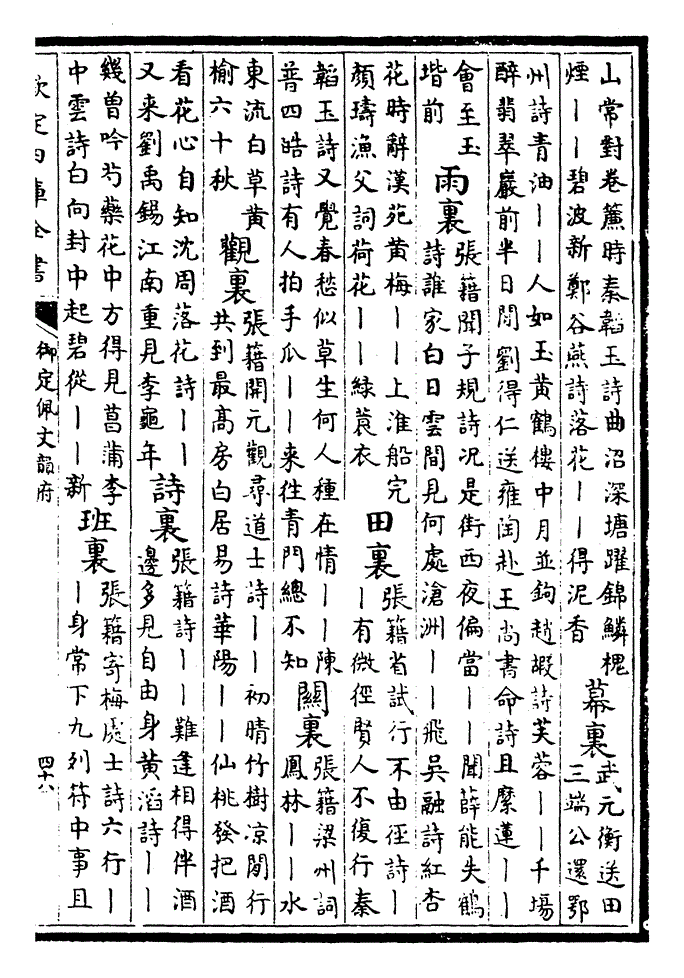 山常對卷簾時秦韜玉詩曲沼深塘躍錦鱗槐
煙丨丨碧波新鄭谷燕詩落花丨丨得泥香
幕裏
武元衡送田
三端公還鄂
州詩青油丨丨人如玉黃鶴樓中月並鉤趙嘏詩芙蓉丨丨千場
醉翡翠巖前半日閒劉得仁送雍陶赴王尚書命詩且縻蓮丨丨
會至玉
堦前
雨裏
張籍聞子規詩況是街西夜偏當丨丨聞薛能失鶴
詩誰家白日雲間見何處滄洲丨丨飛吳融詩紅杏
花時辭漢苑黃梅丨丨上淮船完
顏璹漁父詞荷花丨丨綠蓑衣
田裏
張籍省試行不由徑詩丨
丨有微徑賢人不復行秦
韜玉詩又覺春愁似草生何人種在情丨丨陳
普四皓詩有人拍手瓜丨丨來往青門總不知
關裏
張籍梁州詞
鳳林丨丨水
東流白草黃
榆六十秋
觀裏
張籍開元觀尋道士詩丨丨初晴竹樹涼閒行
共到最高房白居易詩華陽丨丨仙桃發把酒
看花心自知沈周落花詩丨丨
又来劉禹錫江南重見李龜年
詩裏
張籍詩丨丨難逢相得伴酒
邊多見自由身黃滔詩丨丨
幾曽吟芍藥花中方得見菖蒲李
中雲詩白向封中起碧從丨丨新
班裏
張籍寄梅處士詩六行丨
丨身常下九列符中事且
欽定四庫全書
御定佩文韻府
四十八